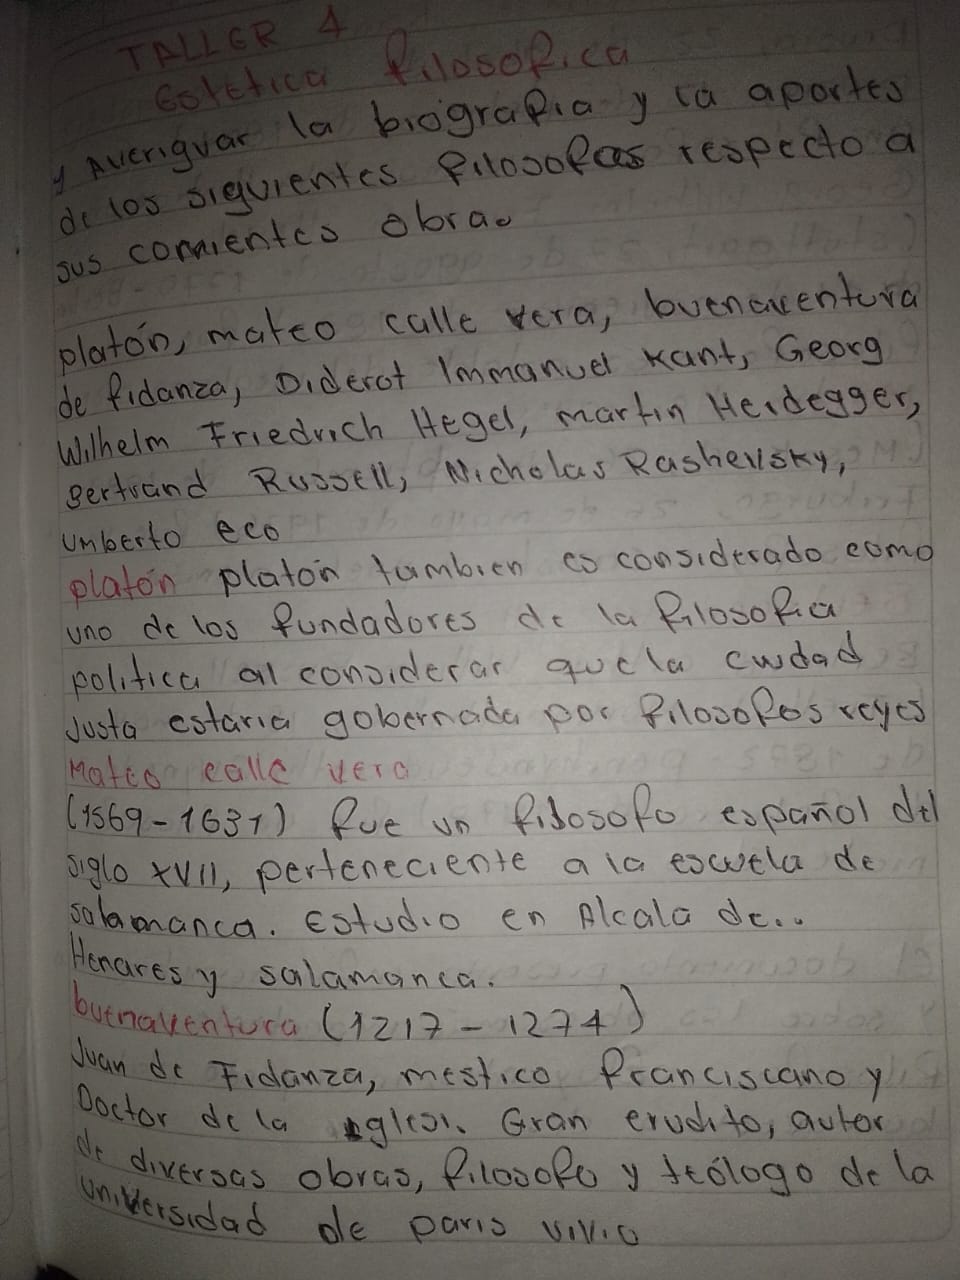 TALLER 4
Estetica filosofica
1 Averiguar la biografia y la aportes
de los siguientes filosofos respecto a
sus corrientes obras
platón, mateo calle vera, buenaventura
de fidanza, Diderot Immanuel Kant, Georg
Wilhelm Friedrich Hegel, martin Heidegger,
Bertrand Russell, Nicholas Rashevsky,
Umberto eco
platón platón tambien es considerado como
uno de los fundadores de la filosofia
politica al considerar que la ciudad
Justa estaria gobernada por filosofos reyes
Mateo calle vera
(1569-1631) fue un filosofo español del
siglo XVII, perteneciente a la escuela de
salamanca. Estudio en Alcala de..
Henares y salamanca.
buenaventura (1217-1274)
Juan de Fidanza, mestico franciscano y
Doctor de la iglesi. Gran erudito, autor
de diversas obras, filosofo y teólogo de la
universidad de paris vivio